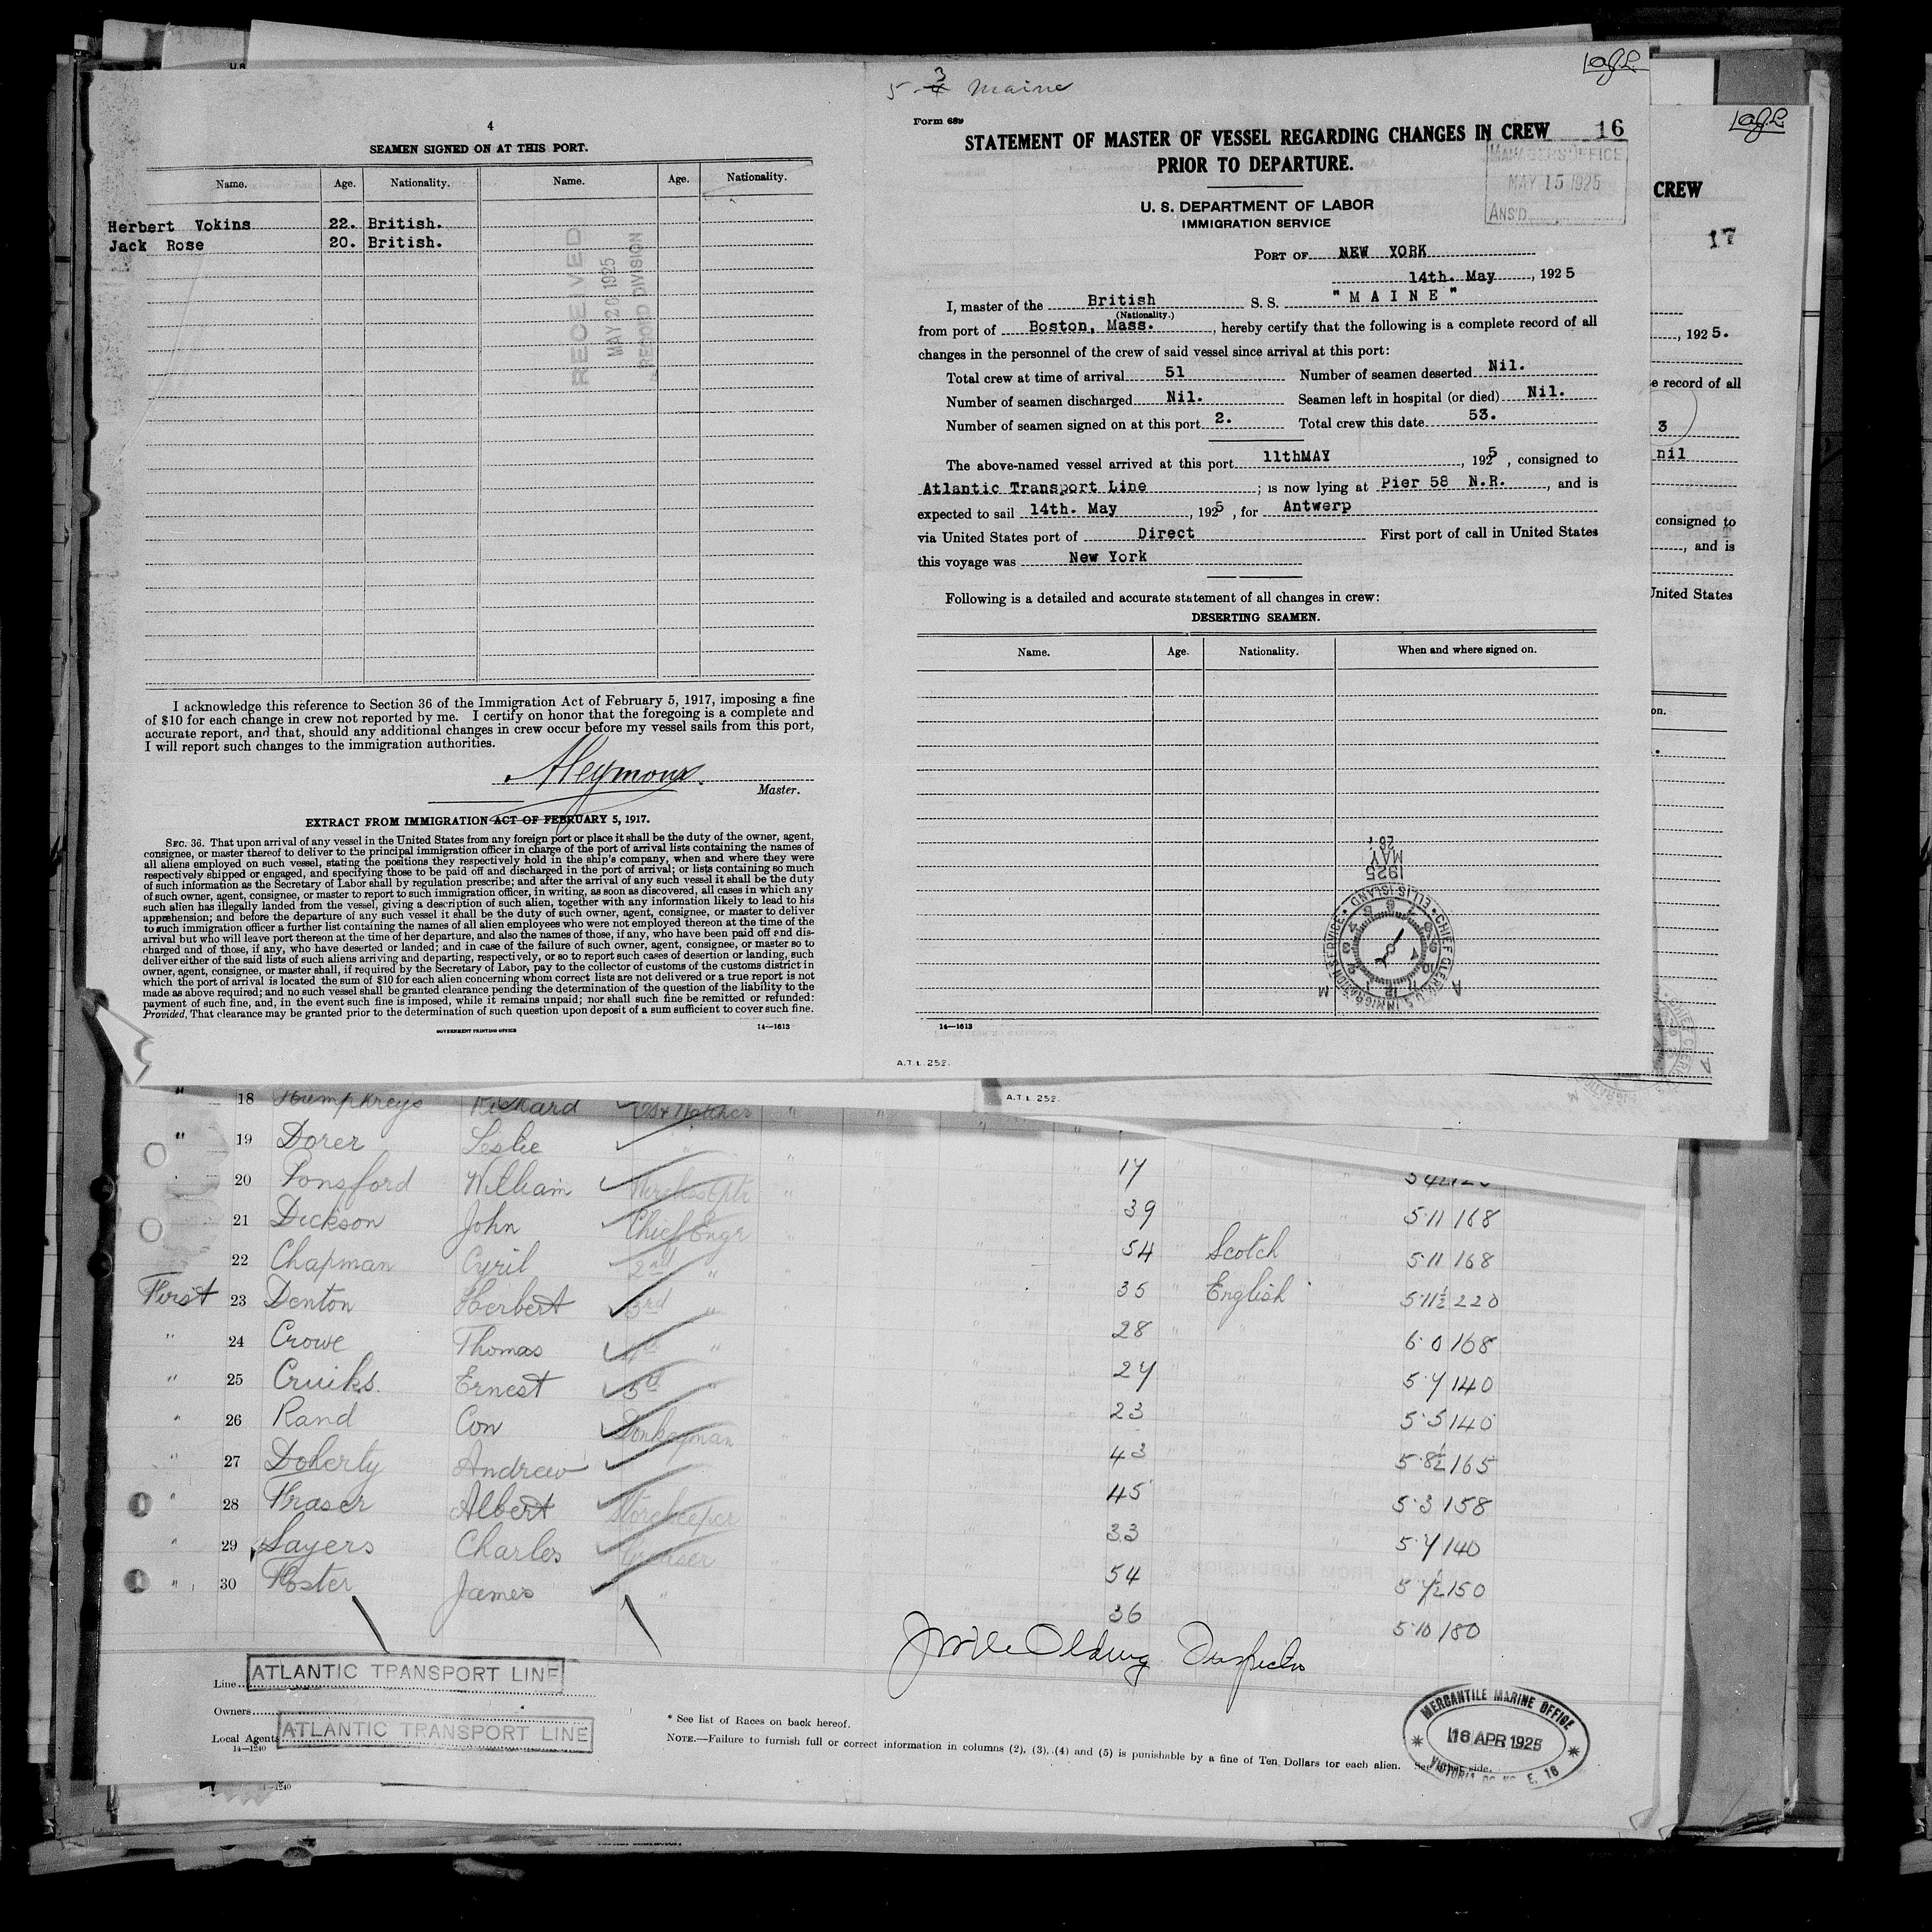 4
SEAMEN SIGNED ON AT THIS PORT.
Name. Age. Nationality. Name. Age. Nationality.
Herbert Vokins 22. British.
Jack Rose 20. British.
RECEIVED
MAY 20 1925
RECORD DIVISION
I acknowledge this reference to Section 36 of the Immigration Act of February 5, 1917, imposing a fine
of $10 for each change in crew not reported by me. I certify on honor that the foregoing is a complete and
accurate report, and that, should any additional changes in crew occur before my vessel sails from this port,
I will report such changes to the immigration authorities.
Master.
EXTRACT FROM IMMIGRATION ACT OF FEBRUARY 5, 1917.
SEC. 36. That upon arrival of any vessel in the United States from any foreign port or place it shall be the duty of the owner, agent,
consignee, or master thereof to deliver to the principal immigration officer in charge of the port of arrival lists containing the names of
all aliens employed on such vessel, stating the positions they respectively hold in the ship's company, when and where they were
respectively shipped or engaged, and specifying those to be paid off and discharged in the port of arrival; or lists containing so much
of such information as the Secretary of Labor shall by regulation prescribe; and after the arrival of any such vessel it shall be the duty
of such owner, agent, consignee, or master to report to such immigration officer, in writing, as soon as discovered, all cases in which any
such alien has illegally landed from the vessel, giving a description of such alien, together with any information likely to lead to his
apprehension; and before the departure of any such vessel it shall be the duty of such owner, agent, consignee, or master to deliver
to such immigration officer a further list containing the names of all alien employees who were not employed thereon at the time of the
arrival but who will leave port thereon at the time of her departure, and also the names of those, if any, who have been paid off and dis-
charged and of those, if any, who have deserted or landed; and in case of the failure of such owner, agent, consignee, or master so to
deliver either of the said lists of such aliens arriving and departing, respectively, or so to report such cases of desertion or landing, such
owner, agent, consignee, or master shall, if required by the Secretary of Labor, pay to the collector of customs of the customs district in
which the port of arrival is located the sum of $10 for each alien concerning whom correct lists are not delivered or a true report is not
made as above required; and no such vessel shall be granted clearance pending the determination of the question of the liability to the
payment of such fine, and, in the event such fine is imposed, while it remains unpaid; nor shall such fine be remitted or refunded:
Provided, That clearance may be granted prior to the determination of such question upon deposit of a sum sufficient to cover such fine.
GOVERNMENT PRINTING OFFICE 14—1613
5-3 Maine
Form 689
STATEMENT OF MASTER OF VESSEL REGARDING CHANGES IN CREW 16
PRIOR TO DEPARTURE.
MANAGERS OFFICE
MAY 15 1925
ANS'D
U. S. DEPARTMENT OF LABOR
IMMIGRATION SERVICE
PORT OF NEW YORK
14th. May, 1925
I, master of the British S. S. "MAINE"
(Nationality.)
from port of Boston, Mass., hereby certify that the following is a complete record of all
changes in the personnel of the crew of said vessel since arrival at this port:
Total crew at time of arrival 51 Number of seamen deserted Nil.
Number of seamen discharged Nil. Seamen left in hospital (or died) Nil.
Number of seamen signed on at this port 2. Total crew this date 53.
The above-named vessel arrived at this port 11thMAY, 1925, consigned to
Atlantic Transport Line; is now lying at Pier 58 N.R., and is
expected to sail 14th. May, 1925, for Antwerp
via United States port of Direct First port of call in United States
this voyage was New York
Following is a detailed and accurate statement of all changes in crew:
DESERTING SEAMEN.
Name. Age. Nationality. When and where signed on.
1925
MAY
CHIEF CLERK U.S. IMMIGRATION SERVICE ELLIS ISLAND
14—1613
A.T.L. 252.
CREW
17
, 1925.
e record of all
3
nil
consigned to
, and is
United States
on.
A.T.L. 252.
" 18 Humphreys Richard
" 19 Dorer Leslie " 17
20 Ponsford William 39 5·11 168
21 Dickson John Chief Engr 54 Scotch 5·11 168
22 Chapman Cyril 2nd " 35 English 5·11½ 220
First 23 Denton Herbert 3rd " 28 " 6·0 168
" 24 Crowe Thomas 4th " 27 " 5·7 140
" 25 Cruiks. Ernest 5th " 23 " 5·5 140
" 26 Rand Con Donkeyman 43 " 5·8½ 165
" 27 Doherty Andrew 45 5·3 158
" 28 Fraser Albert Storekeeper 33 5·7 140
" 29 Sayers Charles Greaser 54 5·7½ 150
" 30 Foster James " 36 5·10 180
Line ATLANTIC TRANSPORT LINE
Owners
Local Agents ATLANTIC TRANSPORT LINE
14—1240
* See list of Races on back hereof.
NOTE.—Failure to furnish full or correct information in columns (2), (3), (4) and (5) is punishable by a fine of Ten Dollars for each alien. See other side.
MERCANTILE MARINE OFFICE
16 APR 1925
VICTORIA E. 16
14—1240